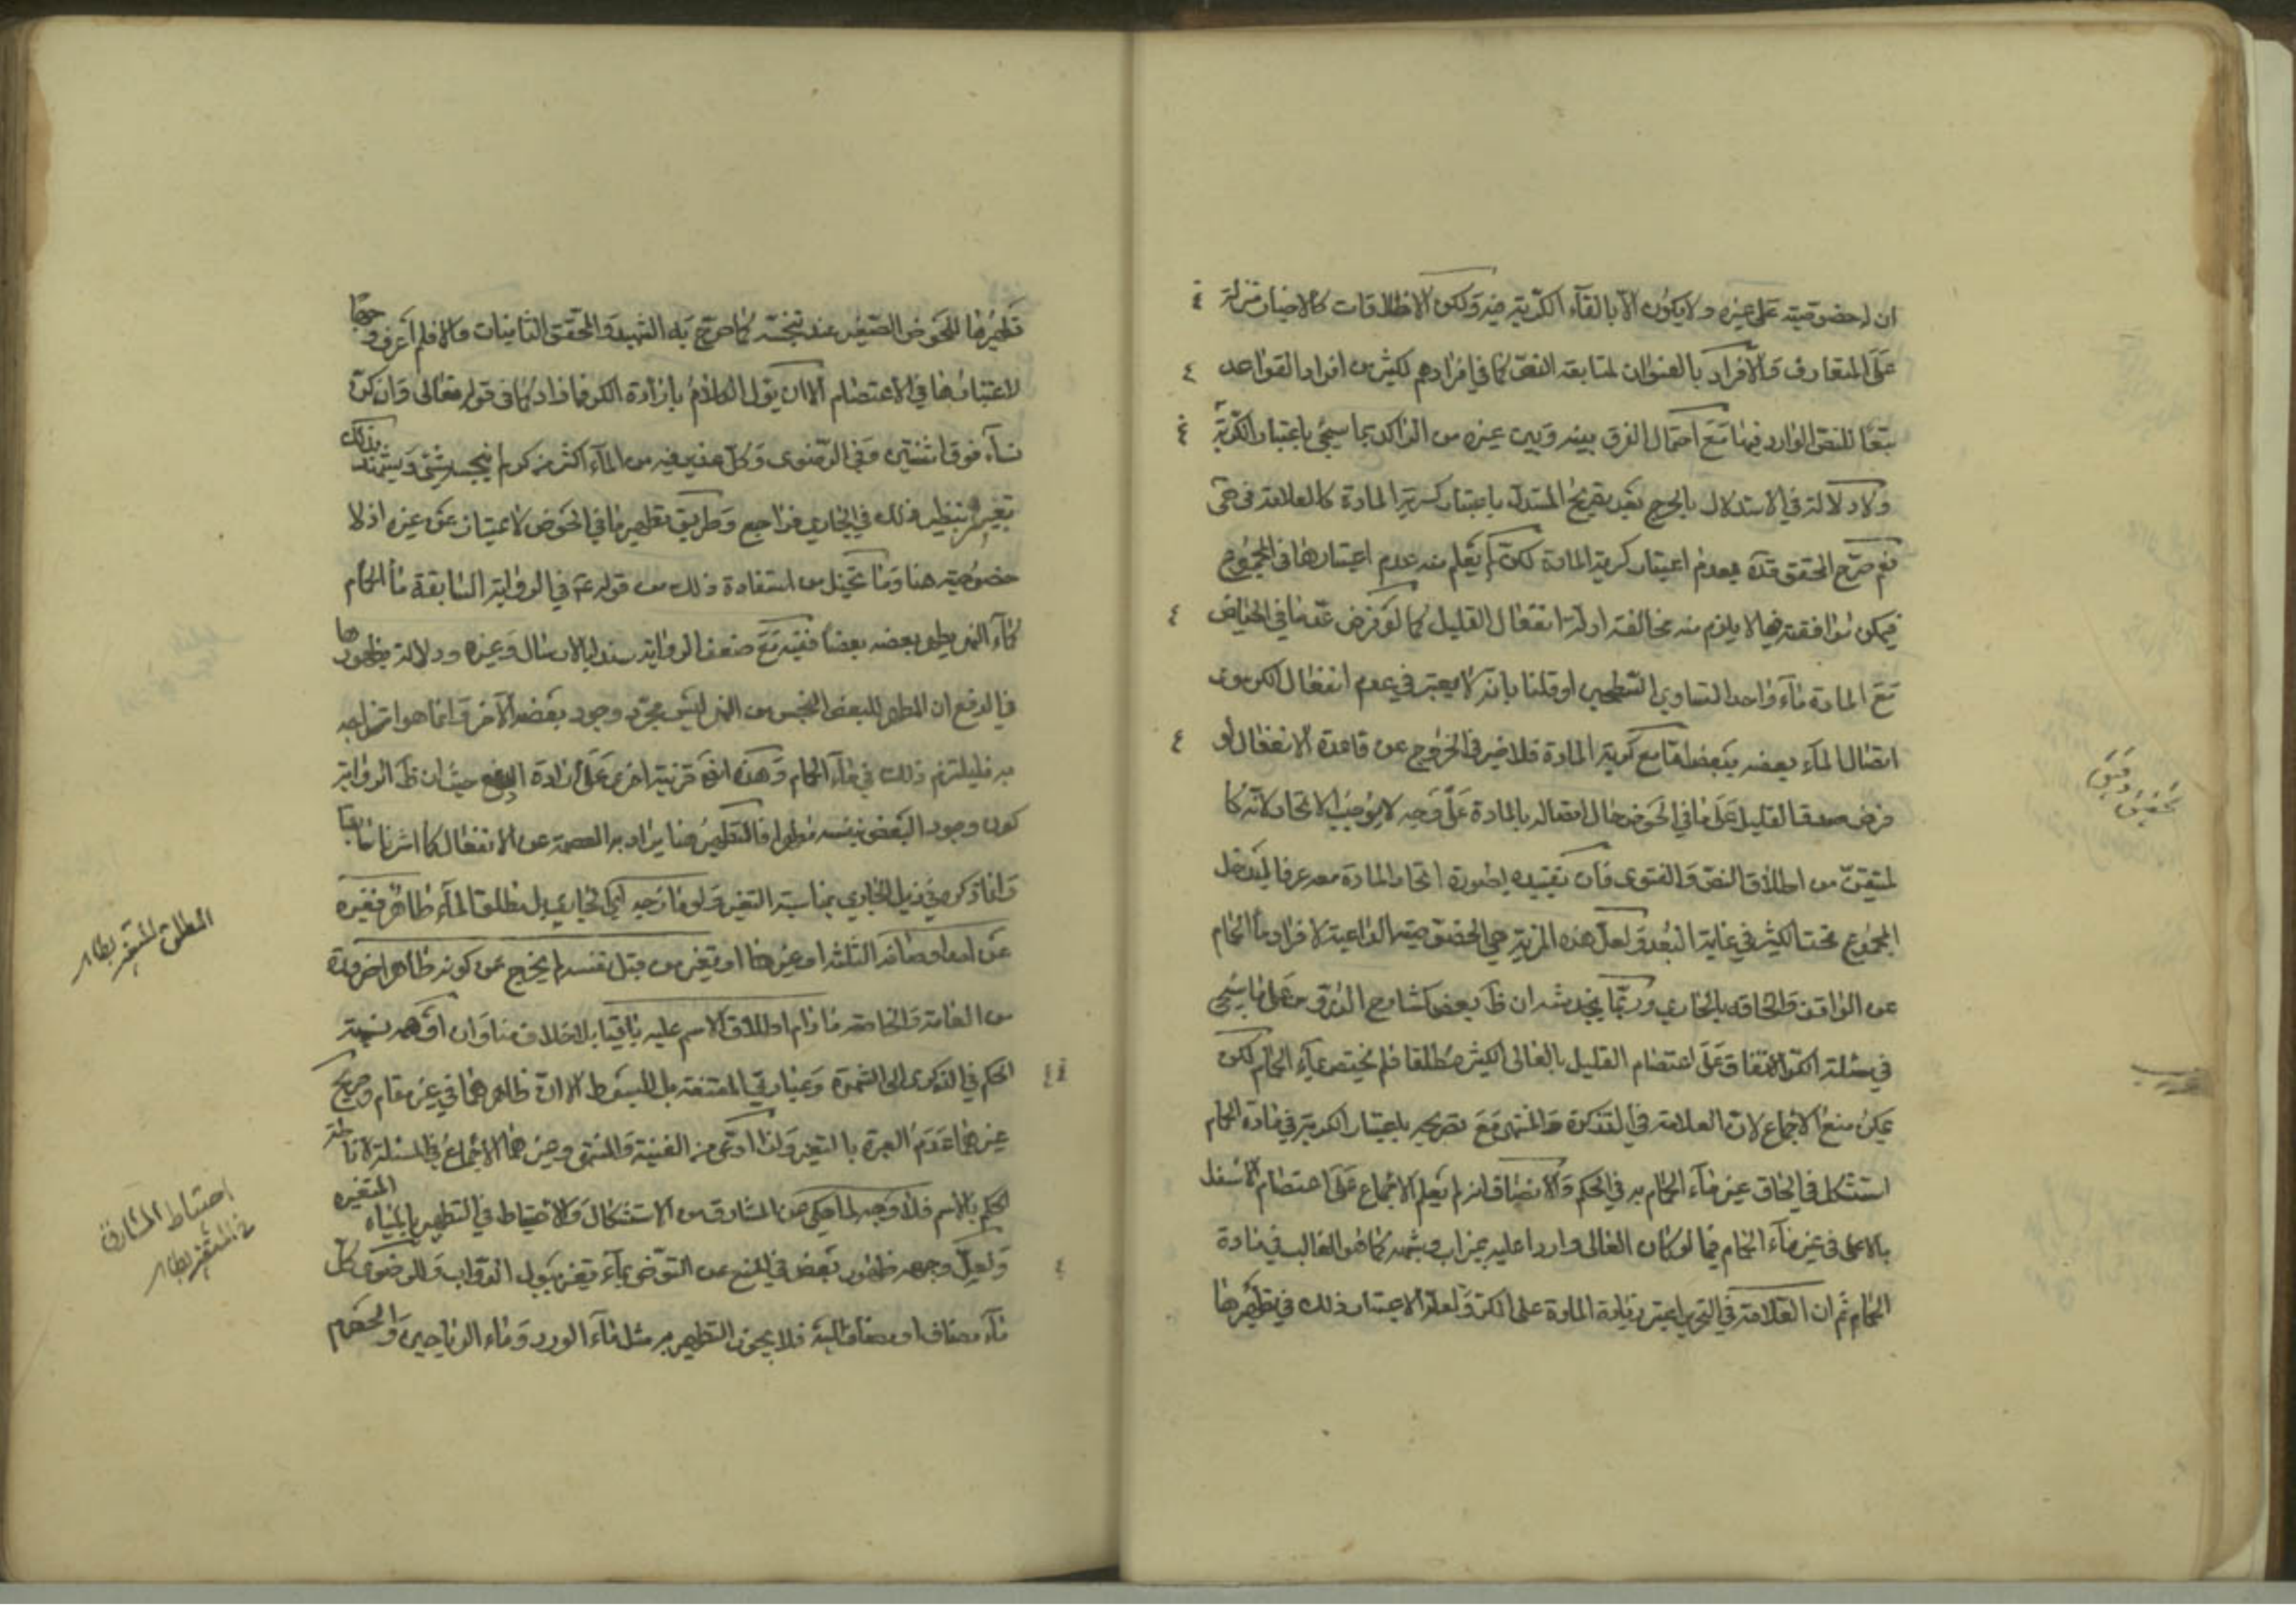 ان لخصوصيته على غيره ولا يكون الا بالقاء الكرية فيه ولكن الاطلاقات كالاخبار منزلة
على المتعارف والافراد بالعنوان لمتابعة النص كما في افرادهم لكثير من افراد القواعد
تبعا للنص الوارد فيها مع احتمال الفرق بينه وبين غيره من الراكد بما سيجئ باعتبار الكرية
ولا دلالة في الاستدلال بالحرج بعد تصريح المستدل باعتبار كرية المادة كالعلامة في حتى
نعم صرح المحقق قده بعدم اعتبار كرية المادة لكن لم يعلم منه عدم اعتبارها في المجموع
فيمكن موافقته فيما لا يلزم منه مخالفة ادلة انفعال القليل كما لو فرض عد ما في الحياض
مع المادة ماء واحدا لتساوي السطحين او قلنا بانه لا يعتبر في عدم انفعال الكر سوى
اتصال الماء بعضه ببعض مطلقا مع كرية المادة فلا ضير في الخروج عن قاعدة الانفعال لو
فرض صدق القليل على ما في الحوض حال اتصاله بالمادة على وجه لا يوجب الاتحاد لانه كا
لمتيقن من اطلاق النص والفتوى فان تقييده بصورة اتحاد المادة معه عرفا ليدخل
المجموع تحت الكثير في غاية البعد ولعل هذه المزية هي الخصوصية الداعية لافراد ماء الحمام
عن الواقف والحاقه بالجاري وربما يخدشه ان ظ بعض كشارح الدروس على ما سيجئ
في مسئلة الكر الاتفاق على اعتصام القليل بالعالي الكثير مطلقا فلم يختص بماء الحمام لكن
يمكن منع الاجماع لان العلامة في التذكرة والمنتهى مع تصريحه باعتبار الكرية في مادة الحمام
استشكل في الحاق غير ماء الحمام به في الحكم والانصاف انه لم يعلم الاجماع على اعتصام الاسفل
بالاعلى في غير ماء الحمام فيما لو كان العالي واردا عليه بميزاب وشبهه كما هو الغالب في مادة
الحمام ثم ان العلامة في التحرير اعتبر زيادة المادة على الكر ولعله لاعتبار ذلك في تطهيرها
تحقيق دقيق
تطهيرها للحوض الصغير عند تنجسه كما صرح به الشهيد والمحقق الثانيان والا فلم اعرف وجها
لاعتبارها في الاعتصام الا ان يؤل الكلام بارادة الكر فما زاد كما في قوله تعالى وان كن
نساء فوق اثنتين وفي الرضوى وكل غدير فيه من الماء اكثر من كر لم ينجسه شئ ويشهد بذلك
تعبيره بنظير ذلك في الجاري فراجع وطريق تطهير ما في الحوض لا يمتاز عن غيره اذ لا
خصوصية هنا وما يتخيل من استفادة ذلك من قوله ع في الرواية السابقة ماء الحمام
كماء النهر يطهر بعضه بعضا ففيه مع ضعف الرواية سندا بالارسال وغيره ودلالة بظهورها
في الدفع ان المطهر للبعض النجس من النهر ليس مجرد وجود بعضه الآخر وانما هو امتزاجه
به فليلتزم ذلك في ماء الحمام وهذه ايض قرينة اخرى على ارادة الدفع حيث ان ظ الرواية
كون وجود البعض بنفسه مطهرا فالتطهير هنا يراد به العصمة عن الانفعال كما اشرنا سابقا
وانما ذكره في ذيل الجاري بمناسبة التغير ولو مازجه اي الجاري بل مطلق الماء طاهر فغيره
عن احد اوصافه الثلثة او غيرها او تغير من قبل نفسه لم يخرج عن كونه طاهرا ضرورة
من العامة والخاصة ما دام اطلاق الاسم عليه باقيا بلا خلاف منا وان اوهمه نسبة
الحكم في الذكرى الى الشهرة وعبارتي المقنعة بل المبسوط الا ان ظاهرهما في غير مقام وصريح
غيرهما عدم العبرة بالتغير ولذا ادعى في الغنية والمنتهى وغيرهما الاجماع في المسئلة لاناطة
الحكم بالاسم فلا وجه لما حكي عن المشارق من الاستشكال والاحتياط في التطهير بالمياه المتغيره
ولعل وجهه ظهور بعض في المنع عن التوضى بماء تغير ببول الدواب والرضوى كل
ماء مضاف او مضاف اليه فلا يجوز التطهير به مثل ماء الورد وماء الرياحين والحصرم
المطلق المتغير بطاهر
احتياط المشارق
في المتغير بطاهر